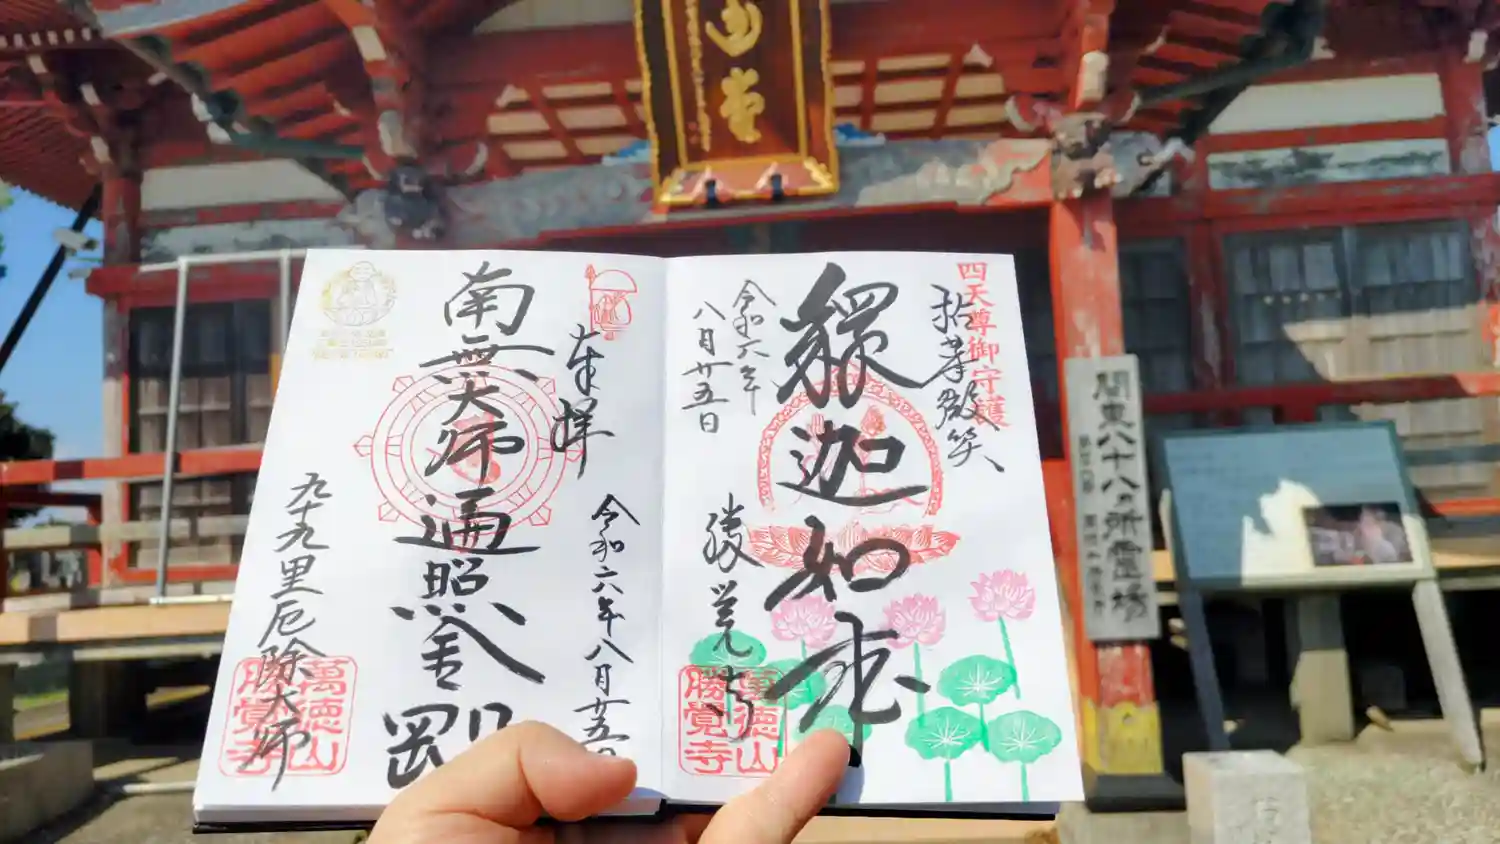 山堂
四天尊御守護
拈華微笑
釈迦如来
令和六年
八月廿五日
勝覚寺
萬徳山
勝覚寺
奉拝
令和六年八月廿五日
南無大師遍照金剛
九十九里厄除大師
萬徳山
勝覚寺
関東八十八ヵ所霊場